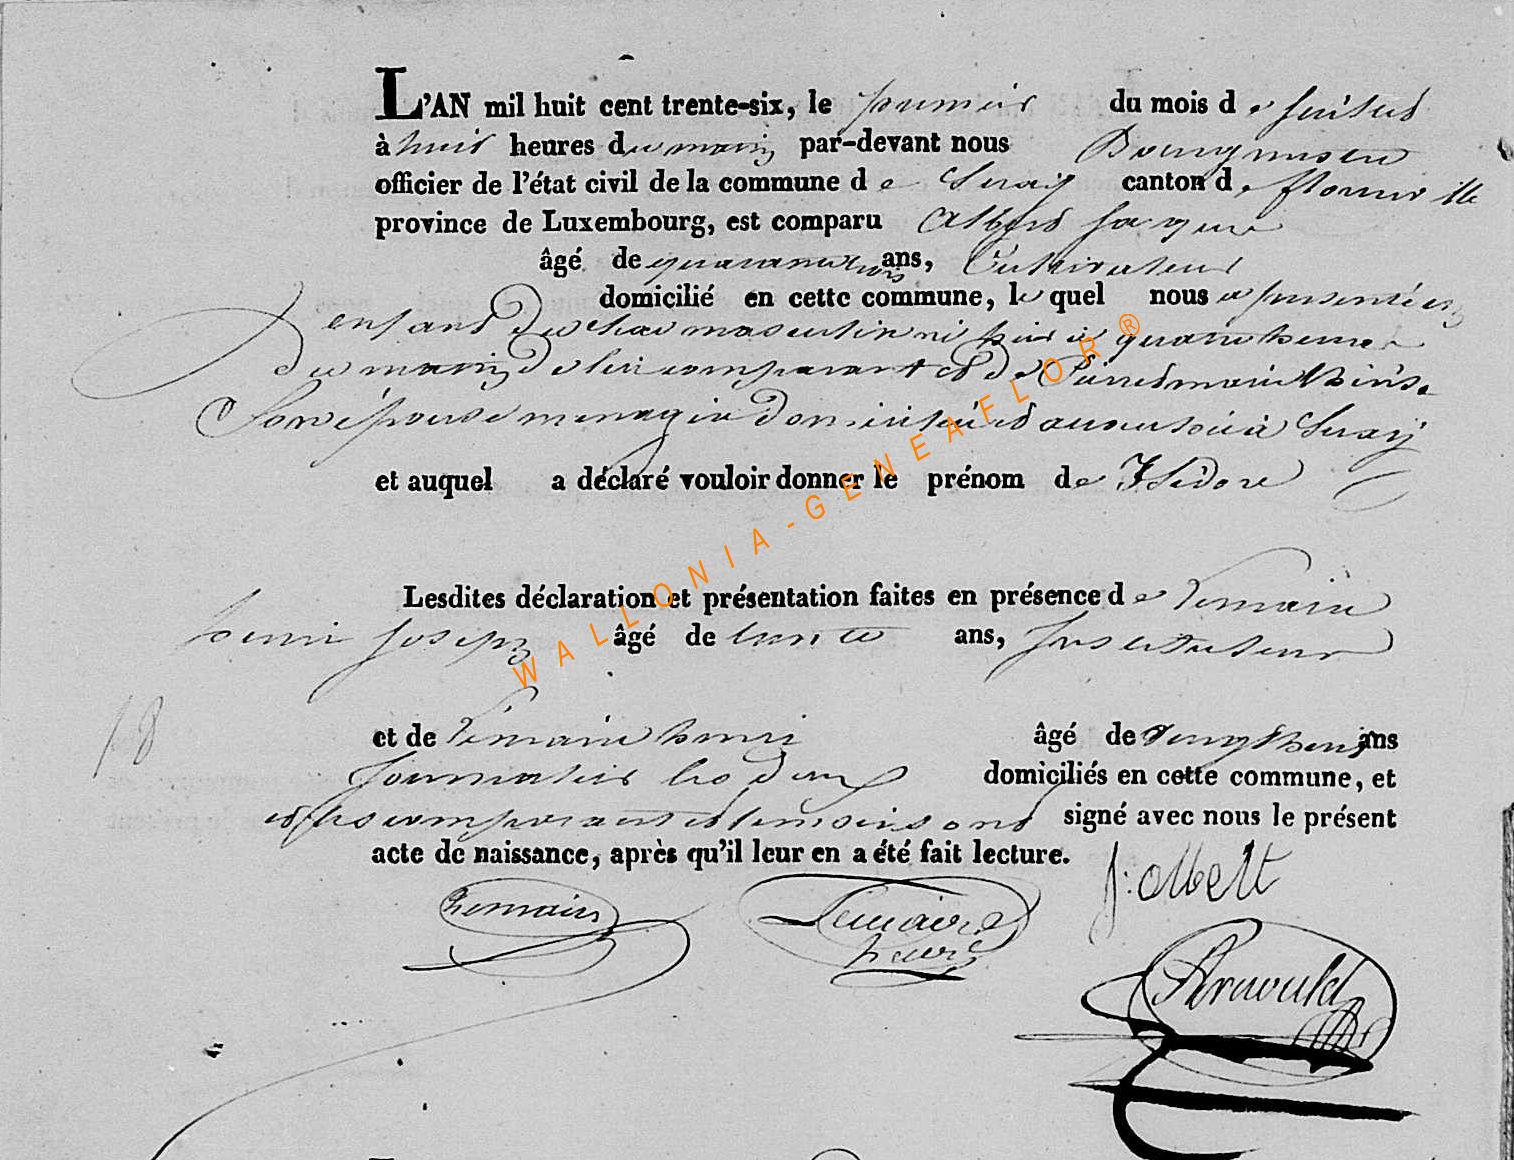 L'AN mil huit cent trente-six, le premier du mois de juillet
à huit heures du matin par-devant nous Bourgmestre
officier de l'état civil de la commune de canton de florenville
province de Luxembourg, est comparu Albert Jacque
âgé de quarante trois ans, Cultivateur
domicilié en cette commune, le quel nous a presenté un
enfant du sexe masculin né hier à quatre heure
du matin de lui comparant et de marie
Son épouse menagère domicilié à
et auquel a déclaré vouloir donner le prénom de Isidore
Lesdites déclaration et présentation faites en présence de Lemaire
henri joseph âgé de trente ans, Instituteur
et de Lemaire henri âgé de ans
Journalier les deux domiciliés en cette commune, et
et les comparant et temoins ont signé avec nous le présent
acte de naissance, après qu'il leur en a été fait lecture.
18
Lemaire Lemaire henri j: albert
Arnould
WALLONIA-GENEAFLOR®